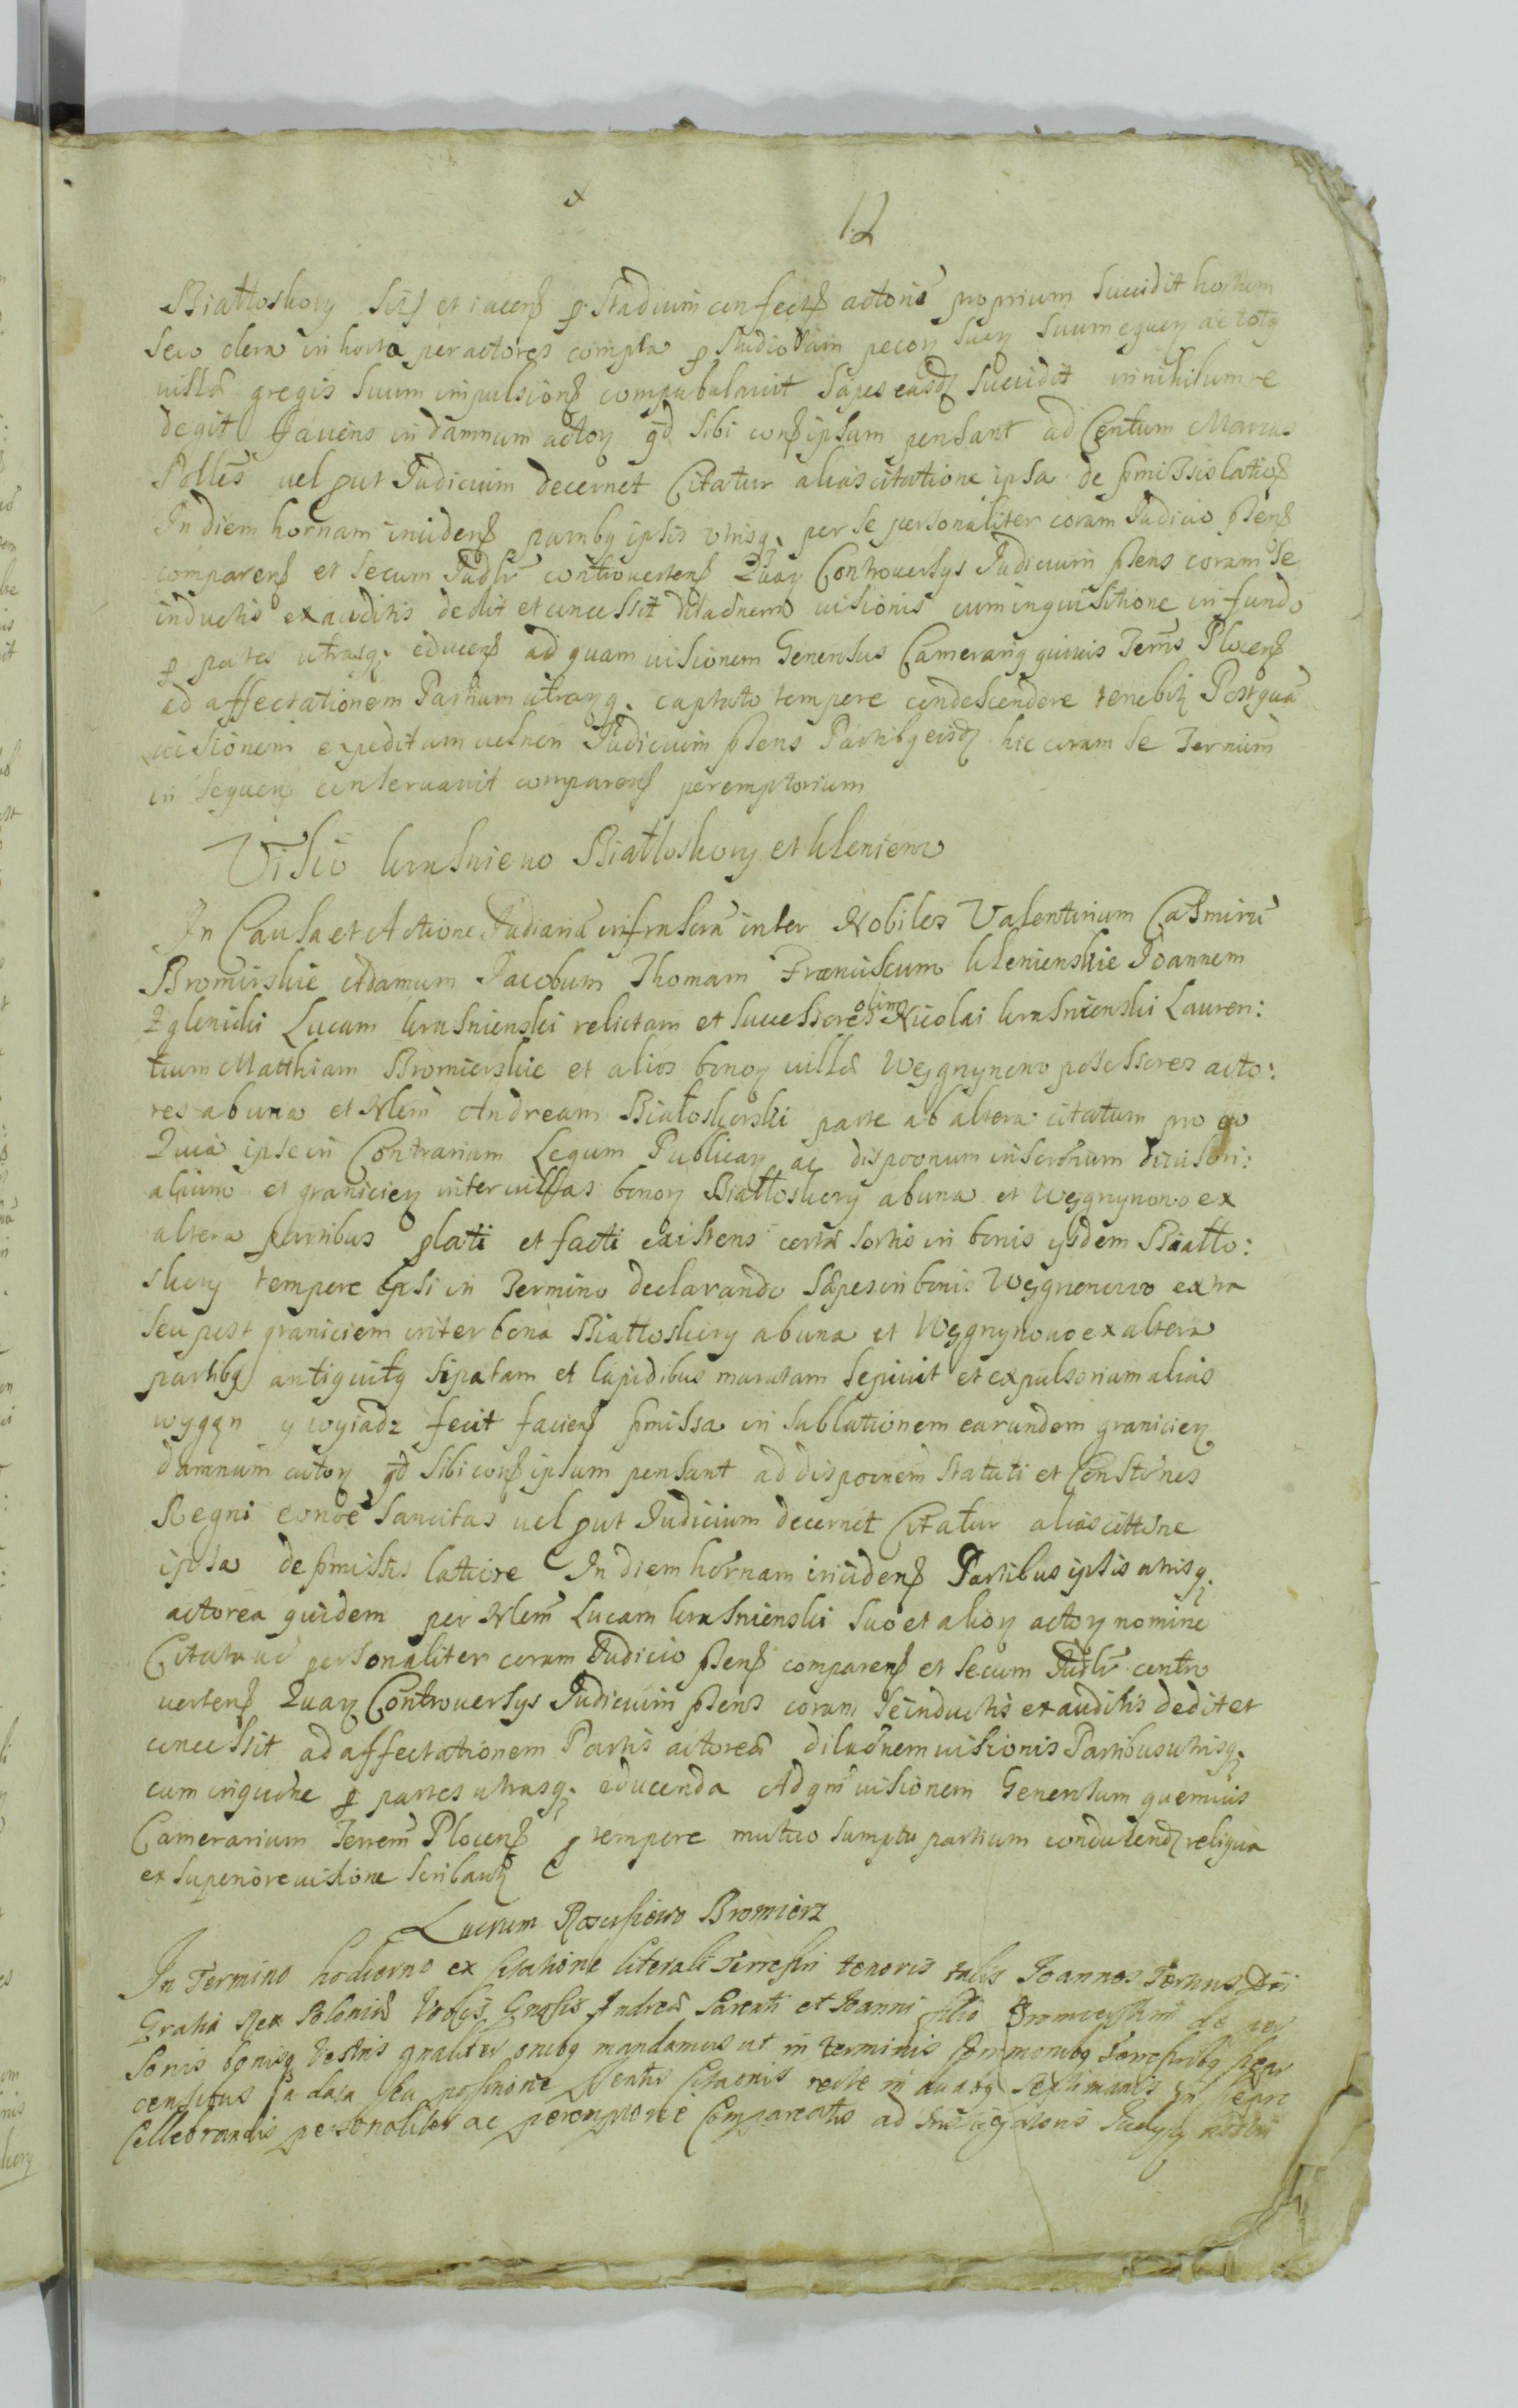 12
Białłoskory sitis et iacen p Stadium confects actoris proprium Succidit hortum
seu olera in horto per actores compta p studiosam pecor suor suum equor ac totq
villæ gregis suum impulsion compabulavit Sapes easdz Succidit in nihilum re
degit faciens in damnum actor qd sibi cons ipsum pensant ad Centum Marcas
Polles vel put Judicium decernet Citatur alias citatione ipsa de pmissis latiꝰ
In diem hornam inciden parnbq ipsis vtrisq per se personaliter coram Judicio psen
comparen et secum Judlr controverten Quar Controversys Judicium psens coram se
inductis exauditis dedit et concessit dilaonem visionis cum inquisitione in fundo
p partes utrasq educen ad quam visionem Generosus Camerariq quivis Terrs Plocen
ad affectationem Partium utrarq captato tempore condescendere tenebit Post qua
visionem expeditam vel non Judicium psens Partibq eisdz hic coram se Terminum
in sequen conservavit comparen peremptorium
Visio Krasniewo Białłoskory et Kleniewo
In Causa et Actione Judiaria infrascra inter Nobiles Valentinum Casimiru
Bromirskie Adamum Jacobum Thomam Franciscum Klenienskie Joannem
Zglenicki Lucam Krasnienski relictam et successores olim Nicolai Krasnienski Lauren:
tium Matthiam Bromierskie et alios bonor villæ Węgrzynowo posessores acto:
res ab una et Nlem Andream Białoskorski parte ab altera citatum pro eo
Quia ipse in Contrarium Legum Publicar ac disponum inscronum divisori:
alium et granicier inter villas bonor Białłoskory ab una et Węgrzynowo ex
altera partibus plati et facti existens certæ sortis in bonis ysdem Białło:
skory tempore ipsi in Termino declarando Sæpes in bonis Węgrzenowo extra
seu post graniciem inter bona Białłoskory ab una et Węgrzynowo ex altera
partibq antiquitq sipatam et lapidibus muratam sepivit et expulsorium alias
wygąn y wyiadz fecit facien pmissa in sublationem earundem granicier
damnum actor qd sibi cons ipsum pensant ad disponem Statuti et Constnes
Regni eonoe Sancitas vel put Judicium decernet Citatur alias cittone
ipsa de pmissis latiore In diem hornam inciden Partibus ipsis utrisq
actorea quidem per Nlem Lucam Krasnienski suo et alior actor nomine
Citata vo personaliter coram Judicio psen comparen et secum Judlr contro
verten Quar Controversys Judicium psens coram se inductis exauditis dedit et
concessit ad affectationem Partis actoreæ dilaonem visionis Partibus utrisq
cum inquone p partes utrasq educenda Ad qm visionem Generosum quemvis
Camerarium Terrem Plocen p tempore mutuo sumptu partium conducend reliqua
ex superiore visione scribantr
Lucrum Rosciszewo Bromierz
In Termino hodierno ex Citatione literali Terrestri tenoris talis Joannes Tertius Dei
Gratia Rex Poloniæ Vobis Gnosis Andreæ Parenti et Joanni filio Bromierskim de per
sonis bonisq vestris gnaliter onibq mandamus ut in terminis
censibus a data seu positione pntis Citaonis recte in duabq Septimanis
Cellebrandis personaliter ac peremptorie Compareatis ad Instigatoris Judyq nostri